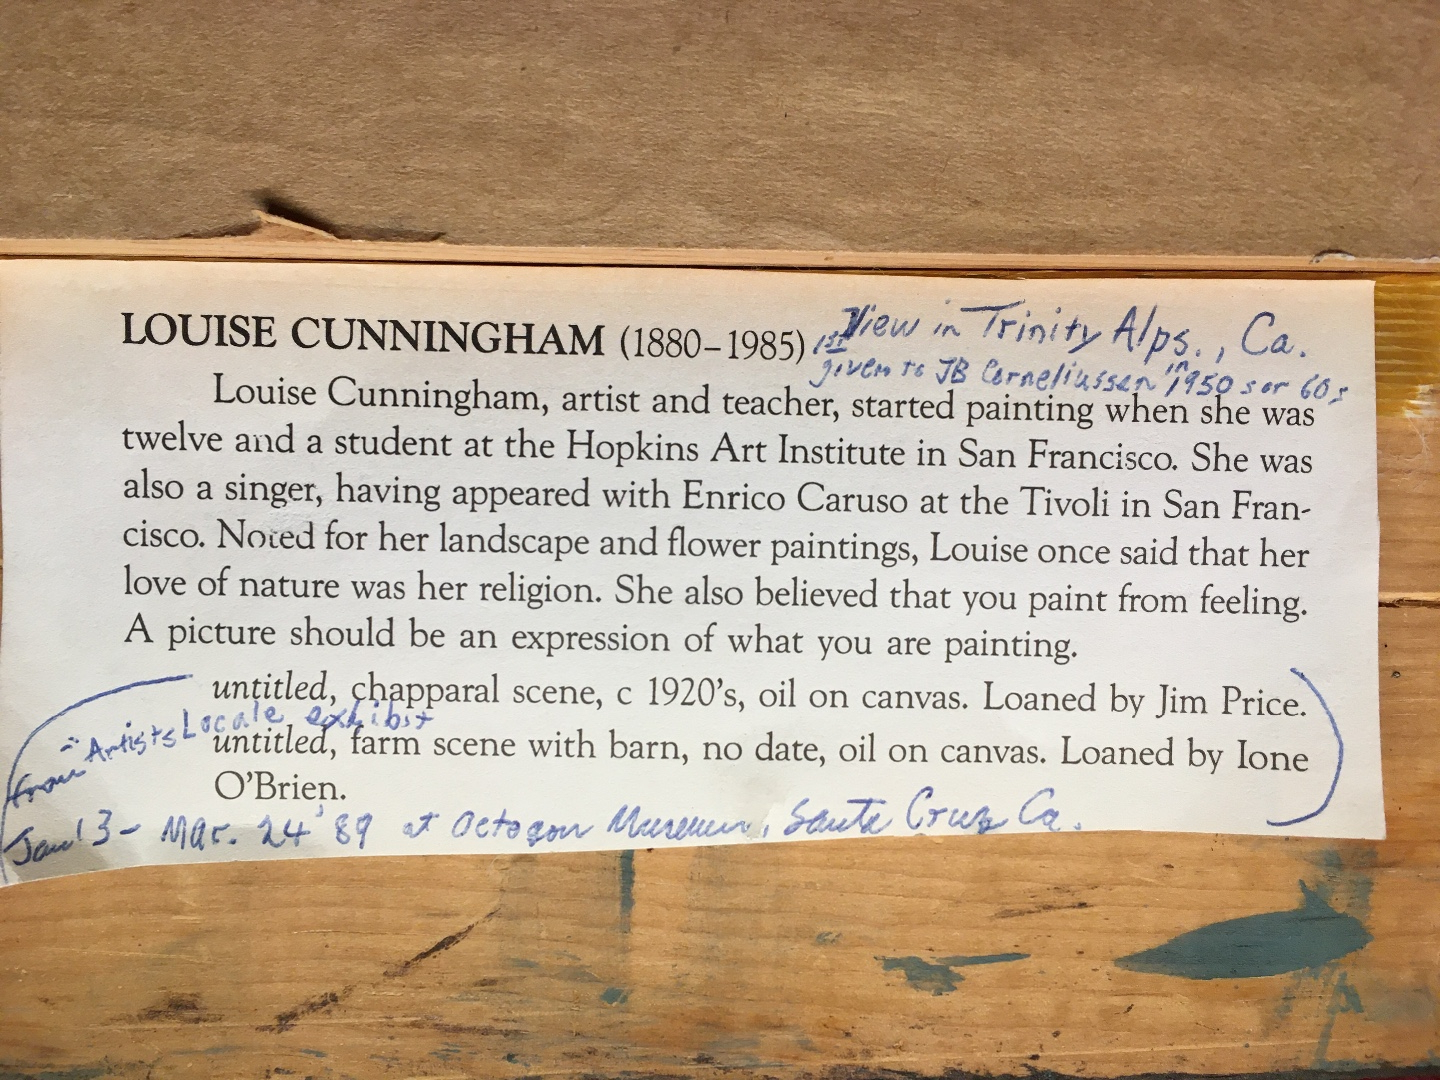 LOUISE CUNNINGHAM (1880–1985) View in Trinity Alps., Ca.
1st given to JB Corneliussen in 1950s or 60s
Louise Cunningham, artist and teacher, started painting when she was
twelve and a student at the Hopkins Art Institute in San Francisco. She was
also a singer, having appeared with Enrico Caruso at the Tivoli in San Fran-
cisco. Noted for her landscape and flower paintings, Louise once said that her
love of nature was her religion. She also believed that you paint from feeling.
A picture should be an expression of what you are painting.
untitled, chapparal scene, c 1920's, oil on canvas. Loaned by Jim Price.
from "Artists Locale exhibit
untitled, farm scene with barn, no date, oil on canvas. Loaned by Ione
O'Brien.
Jan 13 - Mar. 24 '89 at Octagon Museum, Santa Cruz Ca.